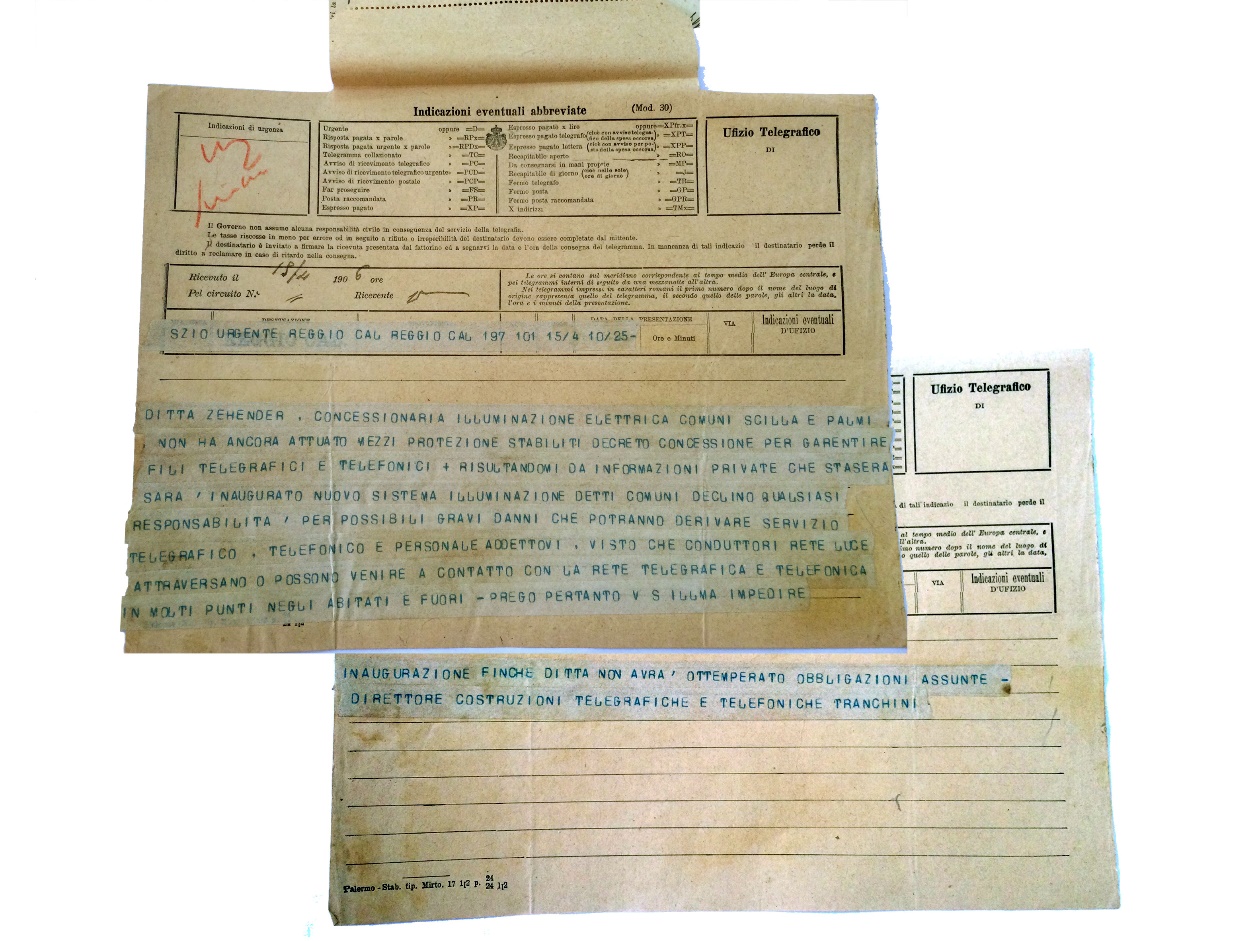 Indicazioni eventuali abbreviate (Mod. 30)
Indicazioni di urgenza
Urgente oppure =D=
Risposta pagata x parole » =RPx=
Risposta pagata urgente x parole » =RPDx=
Telegramma collazionato » =TC=
Avviso di ricevimento telegrafico » =PC=
Avviso di ricevimento telegrafico urgente » =PCD=
Avviso di ricevimento postale » =PCP=
Far proseguire » =FS=
Posta raccomandata » =PR=
Espresso pagato » =XP=
Espresso pagato x lire oppure =XPfr.x=
Espresso pagato telegrafo » =XPT=
Espresso pagato lettera » =XPP=
Recapitabile aperto » =RO=
Da consegnarsi in mani proprie » =MP=
Recapitabile di giorno (cioè nelle sole ore di giorno) » =J=
Fermo telegrafo » =TR=
Fermo posta » =GP=
Fermo posta raccomandata » =GPR=
X indirizzi » =TMx=
Ufizio Telegrafico
DI
Il Governo non assume alcuna responsabilità civile in conseguenza del servizio della telegrafia.
Le tasse riscosse in meno per errore od in seguito a rifiuto o irrepecibilità del destinatario devono essere completate dal mittente.
Il destinatario è invitato a firmare la ricevuta presentata dal fattorino ed a segnarvi la data e l'ora della consegna del telegramma. In mancanza di tali indicazio il destinatario perde il
diritto a reclamare in caso di ritardo nella consegna.
Ricevuto il 15/4 190 6 ore
Pel circuito N.° Ricevente
Le ore si contano sul meridiano corrispondente al tempo medio dell' Europa centrale, e
pei telegrammi interni di seguito da una mezzanotte all'altra.
Nei telegrammi impressi in caratteri romani il primo numero dopo il nome del luogo di
origine rappresenta quello del telegramma, il secondo quello delle parole, gli altri la data,
l'ora e i minuti della presentazione.
DATA DELLA PRESENTAZIONE
VIA
Indicazioni eventuali
D'UFIZIO
SZIO URGENTE REGGIO CAL REGGIO CAL 197 101 15/4 10/25-
Ore e Minuti
DITTA ZEHENDER , CONCESSIONARIA ILLUMINAZIONE ELETTRICA COMUNI SCILLA E PALMI ,
, NON HA ANCORA ATTUATO MEZZI PROTEZIONE STABILITI DECRETO CONCESSIONE PER GARENTIRE
FILI TELEGRAFICI E TELEFONICI + RISULTANDOMI DA INFORMAZIONI PRIVATE CHE STASERA
SARA ' INAUGURATO NUOVO SISTEMA ILLUMINAZIONE DETTI COMUNI DECLINO QUALSIASI
RESPONSABILITA ' PER POSSIBILI GRAVI DANNI CHE POTRANNO DERIVARE SERVIZIO
TELEGRAFICO , TELEFONICO E PERSONALE ADDETTOVI , VISTO CHE CONDUTTORI RETE LUCE
ATTRAVERSANO O POSSONO VENIRE A CONTATTO CON LA RETE TELEGRAFICA E TELEFONICA
IN MOLTI PUNTI NEGLI ABITATI E FUORI - PREGO PERTANTO V S ILLMA IMPEDIRE
Ufizio Telegrafico
DI
di tali indicazio il destinatario perde il
al tempo medio dell' Europa centrale, e
all'altra.
imo numero dopo il nome del luogo di
o quello delle parole, gli altri la data,
VIA
Indicazioni eventuali
D'UFIZIO
INAUGURAZIONE FINCHE DITTA NON AVRA ' OTTEMPERATO OBBLIGAZIONI ASSUNTE -
DIRETTORE COSTRUZIONI TELEGRAFICHE E TELEFONICHE TRANCHINI
Palermo - Stab. tip. Mirto. 17 1[2 p. 24
24 1[2